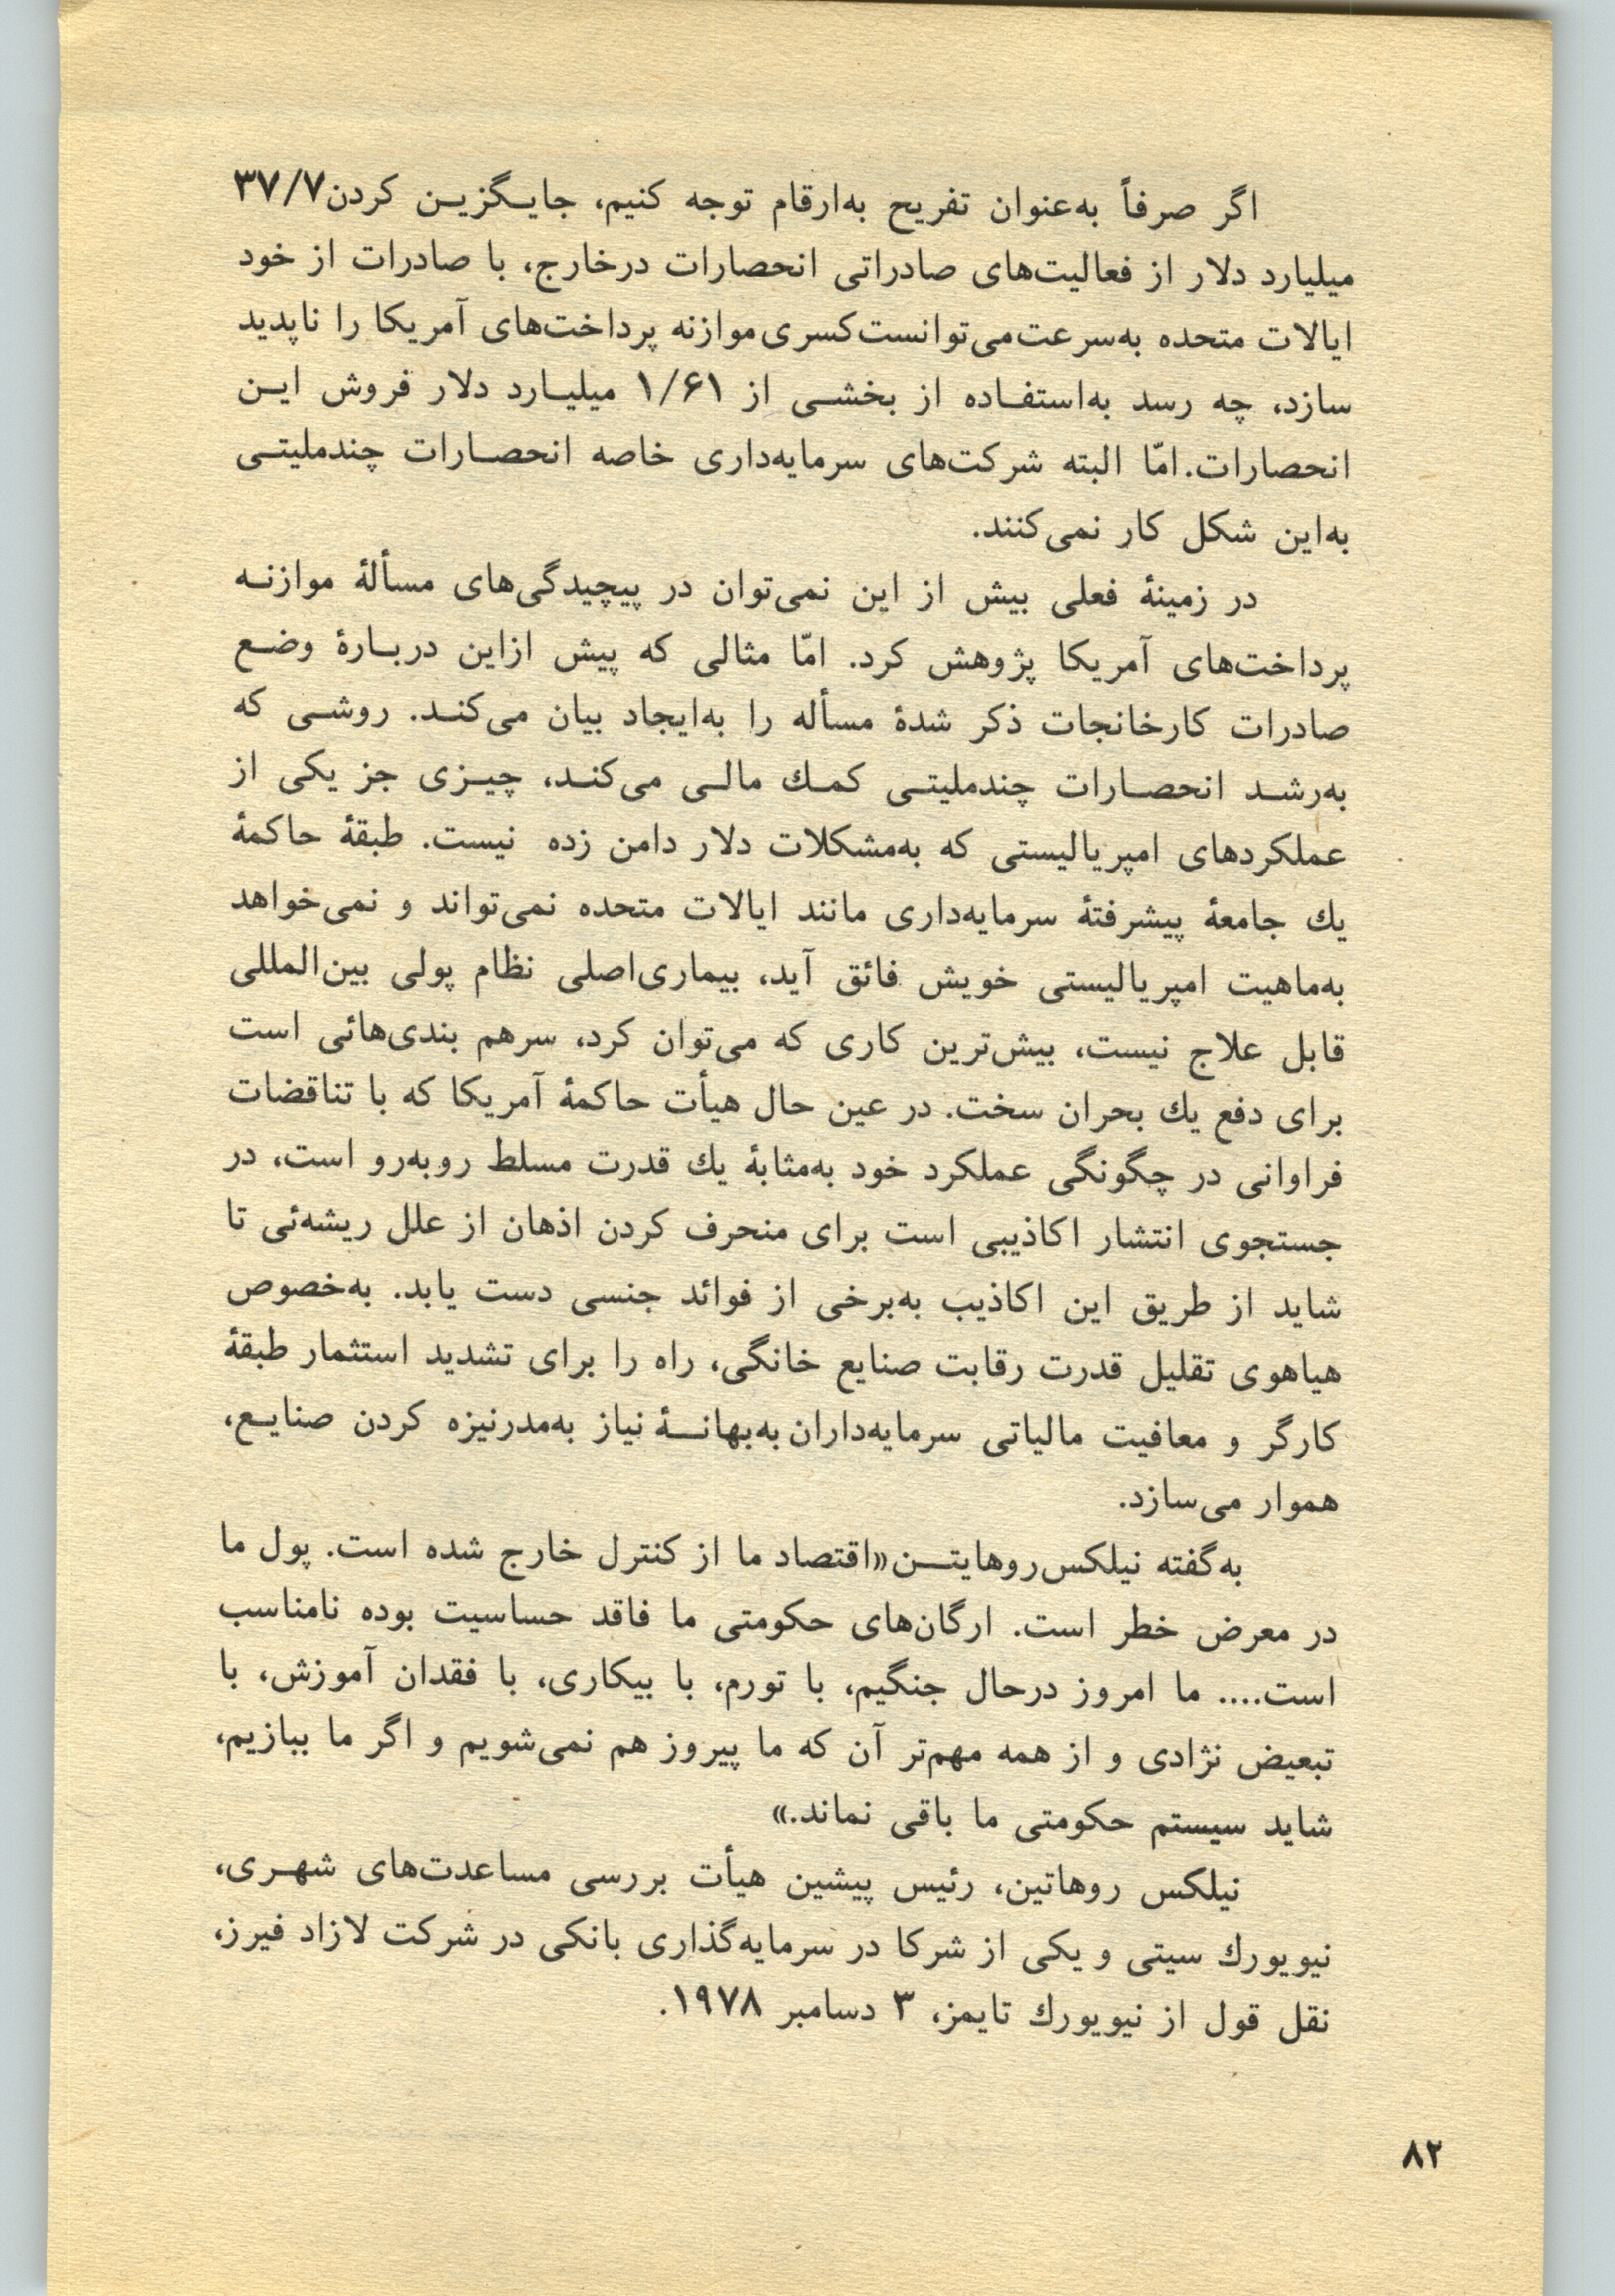 اگر صرفاً به‌عنوان تفریح به‌ارقام توجه کنیم، جایگزین کردن ۳۷/۷
میلیارد دلار از فعالیت‌های صادراتی انحصارات درخارج، با صادرات از خود
ایالات متحده به‌سرعت می‌توانست کسری موازنه پرداخت‌های آمریکا را ناپدید
سازد، چه رسد به‌استفاده از بخشی از ۱/۶۱ میلیارد دلار فروش این
انحصارات. امّا البته شرکت‌های سرمایه‌داری خاصه انحصارات چندملیتی
به‌این شکل کار نمی‌کنند.
در زمینهٔ فعلی بیش از این نمی‌توان در پیچیدگی‌های مسألهٔ موازنه
پرداخت‌های آمریکا پژوهش کرد. امّا مثالی که پیش ازاین دربارهٔ وضع
صادرات کارخانجات ذکر شدهٔ مسأله را به‌ایجاد بیان می‌کند. روشی که
به‌رشد انحصارات چندملیتی کمك مالی می‌کند، چیزی جز یکی از
عملکردهای امپریالیستی که به‌مشکلات دلار دامن زده نیست. طبقهٔ حاکمهٔ
یك جامعهٔ پیشرفتهٔ سرمایه‌داری مانند ایالات متحده نمی‌تواند و نمی‌خواهد
به‌ماهیت امپریالیستی خویش فائق آید، بیماری‌اصلی نظام پولی بین‌المللی
قابل علاج نیست، بیش‌ترین کاری که می‌توان کرد، سرهم بندی‌هائی است
برای دفع یك بحران سخت. در عین حال هیأت حاکمهٔ آمریکا که با تناقضات
فراوانی در چگونگی عملکرد خود به‌مثابهٔ یك قدرت مسلط روبه‌رو است، در
جستجوی انتشار اکاذیبی است برای منحرف کردن اذهان از علل ریشه‌ئی تا
شاید از طریق این اکاذیب به‌برخی از فوائد جنسی دست یابد. به‌خصوص
هیاهوی تقلیل قدرت رقابت صنایع خانگی، راه را برای تشدید استثمار طبقهٔ
کارگر و معافیت مالیاتی سرمایه‌داران به‌بهانهٔ نیاز به‌مدرنیزه کردن صنایع،
هموار می‌سازد.
به‌گفته نیلکس‌روهایتن «اقتصاد ما از کنترل خارج شده است. پول ما
در معرض خطر است. ارگان‌های حکومتی ما فاقد حساسیت بوده نامناسب
است.... ما امروز درحال جنگیم، با تورم، با بیکاری، با فقدان آموزش، با
تبعیض نژادی و از همه مهم‌تر آن که ما پیروز هم نمی‌شویم و اگر ما ببازیم،
شاید سیستم حکومتی ما باقی نماند.»
نیلکس روهاتین، رئیس پیشین هیأت بررسی مساعدت‌های شهری،
نیویورك سیتی و یکی از شرکا در سرمایه‌گذاری بانکی در شرکت لازاد فیرز،
نقل قول از نیویورك تایمز، ۳ دسامبر ۱۹۷۸.
۸۲